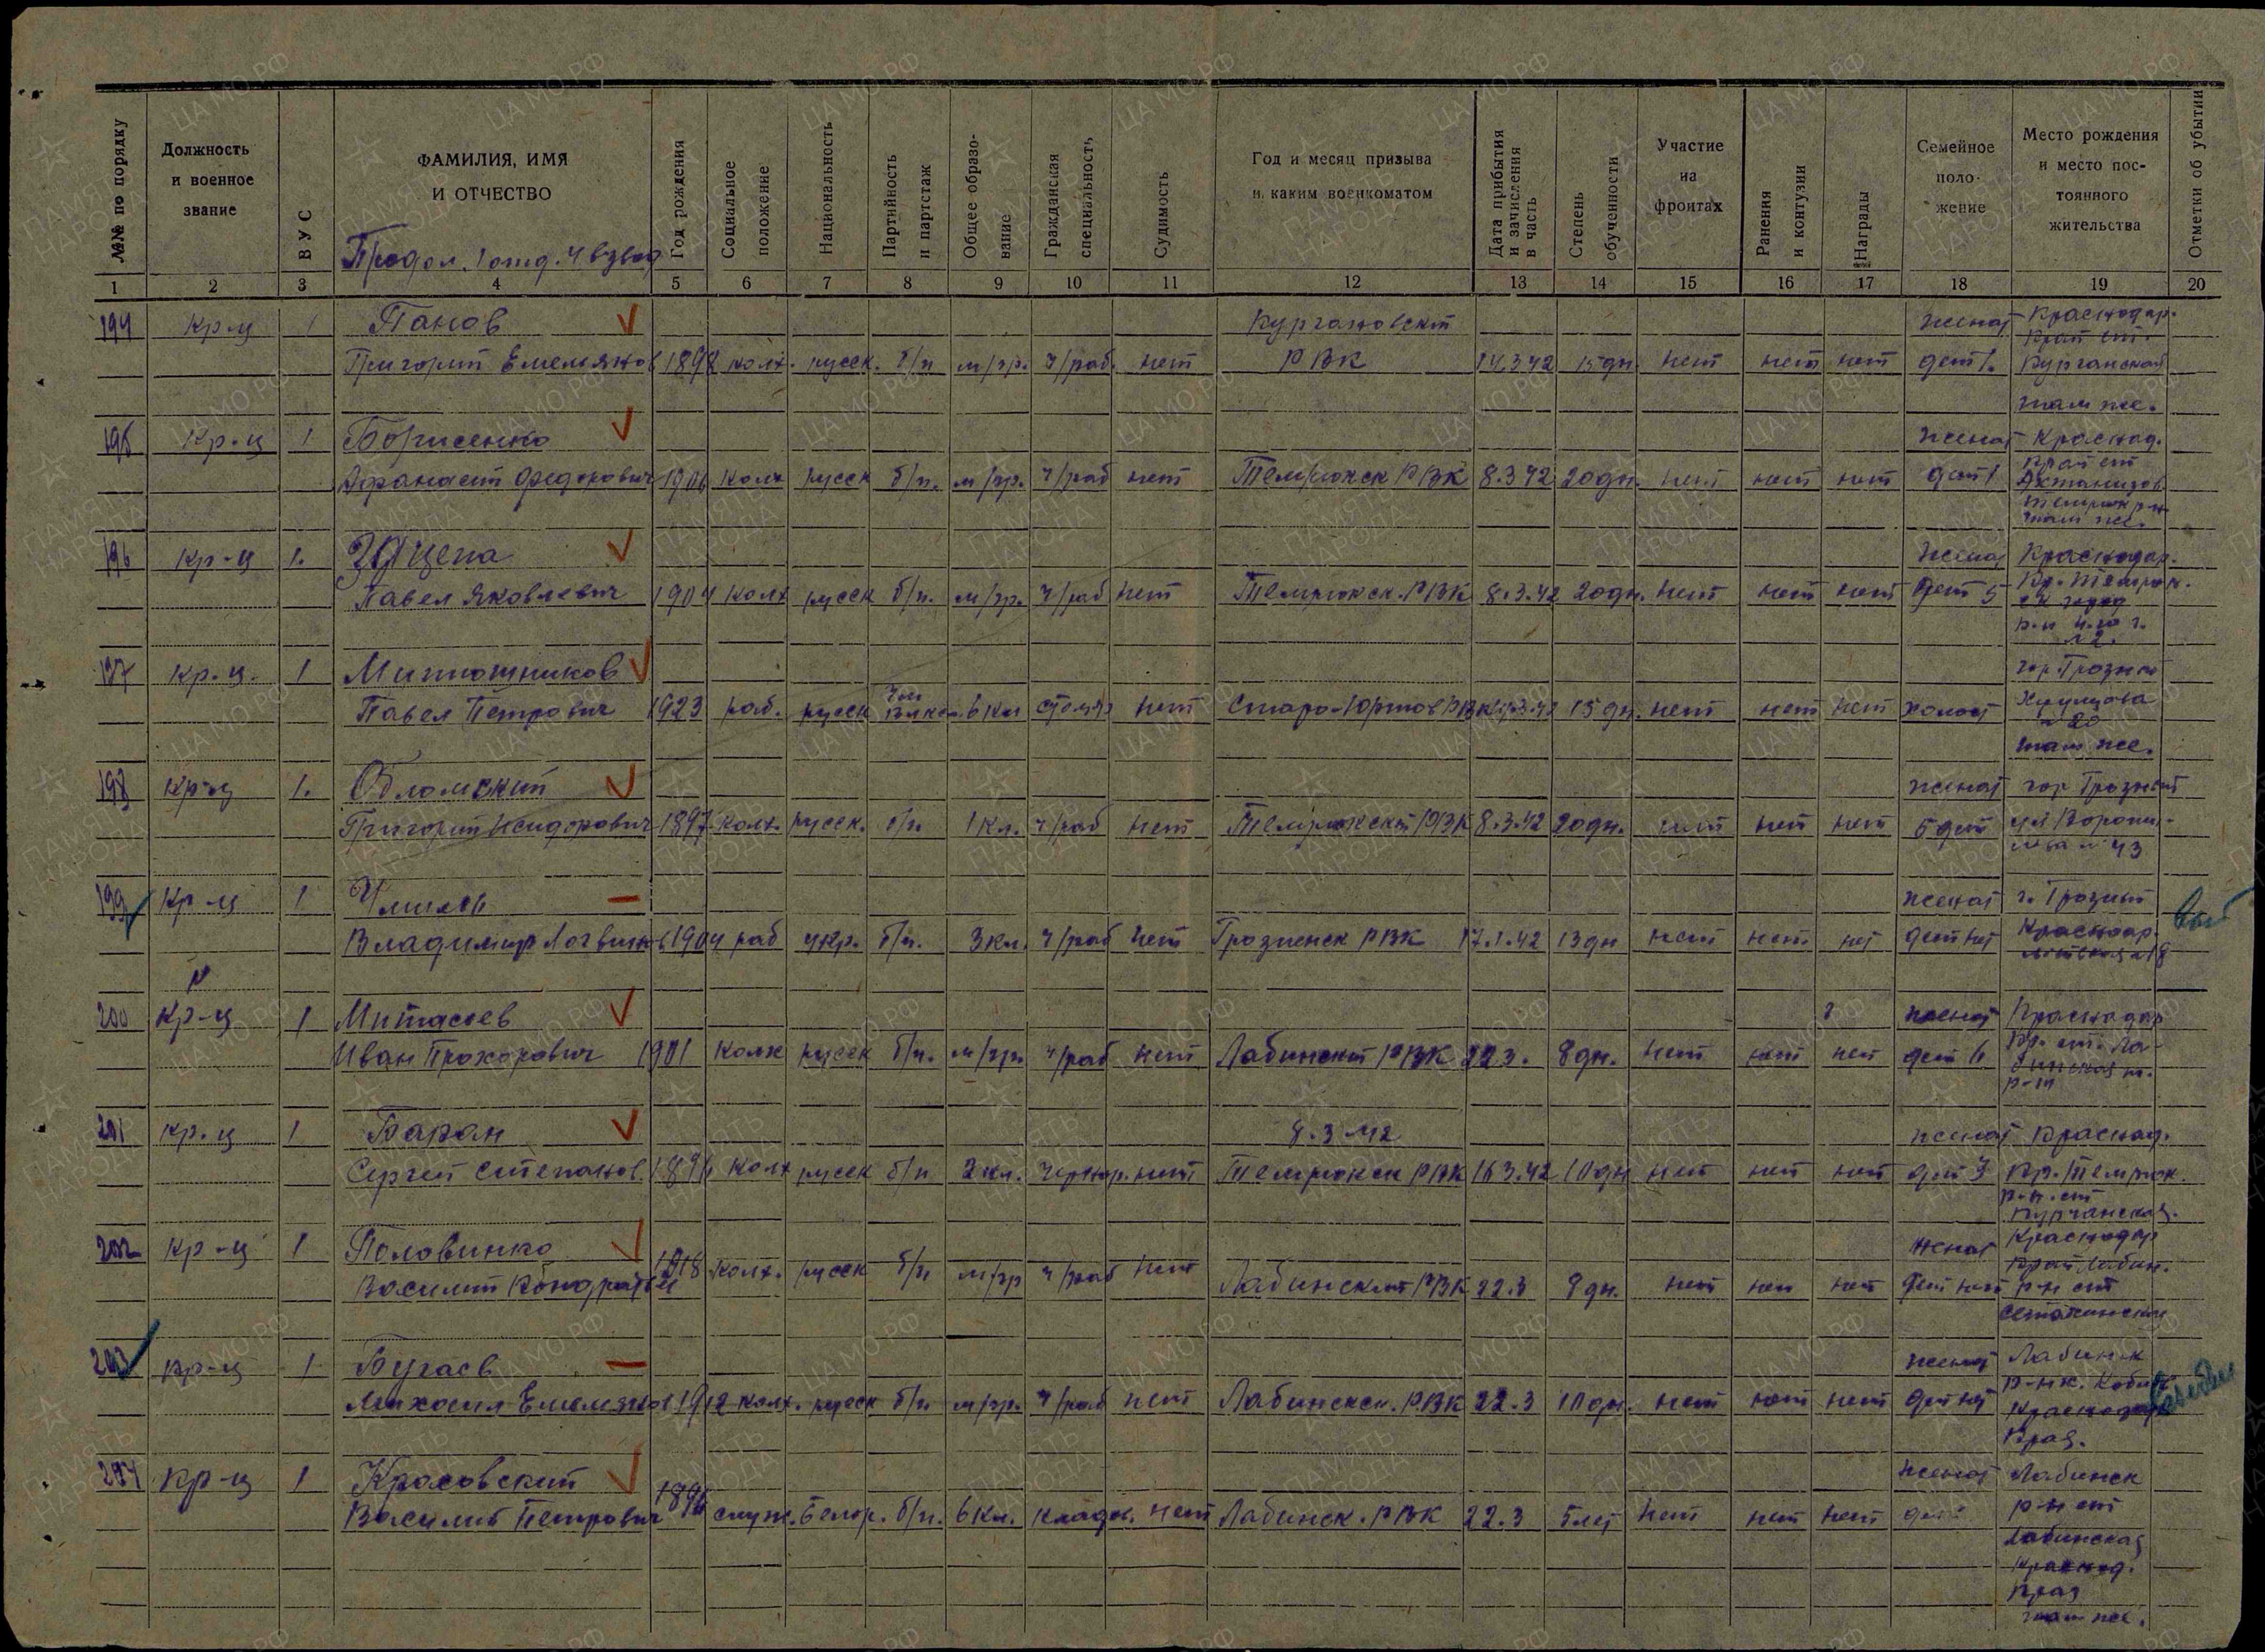 №№ по порядку
Должность и военное звание
ВУС
ФАМИЛИЯ, ИМЯ И ОТЧЕСТВО
Продол. 1 отд. 4 взвод
Год рождения
Социальное положение
Национальность
Партийность и партстаж
Общее образование
Гражданская специальность
Судимость
Год и месяц призыва и каким военкоматом
Дата прибытия и зачисления в часть
Степень обученности
Участие на фронтах
Ранения и контузии
Награды
Семейное поло-жение
Место рождения и место пос-тоянного жительства
Отметки об убытии
1 2 3 4 5 6 7 8 9 10 11 12 13 14 15 16 17 18 19 20
194 Кр-ц 1 Панов женат Краснодар.
край ст.
Григорий Емельянов 1898 колх. русск. б/п м/гр. ч/раб. нет РВК 14.3.42 15 дн. нет нет нет дет 1. Курганская
там же.
195 Кр-ц 1 Борисенко женат Краснод.
край ст
Афанасий Федорович 1906 колх русск б/п. м/гр. ч/раб нет Темрюкск РВК 8.3.42 20 дн. нет нет нет дет 1 Ахтанизов
Темрюк р-н
там же.
196 Кр-ц 1. женат Краснодар.
Павел Яковлевич 1904 колх русск б/п. м/гр. ч/раб нет Темрюкск. РВК 8.3.42 20 дн. нет нет нет дет 5 Кр. Темрюк.
197 Кр-ц. 1 гор. Грозный
Павел Петрович 1923 раб. русск 6 кл столяр нет Старо-Юртов РВК 15 дн. нет нет нет холост
20
там же.
198 Кр-ц 1. Обломский женат гор Грозный
Григорий Исидорович 1897 колх. русск. б/п 1 кл. ч/раб нет Темрюкский РВК 8.3.42 20 дн. нет нет нет 5 дет ул Вороши-
лова № 43
199 Кр-ц 1 женат г. Грозный
Владимир Логвинов 1904 раб укр. б/п. 3 кл. ч/раб нет Грозненск РВК 17.1.42 13 дн нет нет нет дет нет Красноар-
200 Кр-ц 1 Митасев женат Краснодар
Иван Прохорович 1901 колх русск б/п. м/гр. ч/раб нет Лабинский РВК 22.3. 8 дн. нет нет нет Кр. ст. Ла-
бинская
201 Кр-ц 1 Баран 8.3.42 женат Краснод.
Сергей Степанов. колх русск б/п 2 кл. нет Темрюкск РВК 16.3.42 10 дн нет нет нет дет 3 Кр. Темрюк.
р-н. ст
Курчанская.
202 Кр-ц 1 Половинко женат Краснодар
Василий Кондратьев 1918 колх. русск б/п м/гр ч/раб нет Лабинский РВК 22.3 8 дн. нет нет нет дет нет край Лабин.
р-н ст
203 Кр-ц 1 Бугаев женат Лабинск
Михаил Емельянов 1912 колх. русск б/п м/гр. ч/раб нет Лабинск. РВК 22.3 10 дн. нет нет нет дет нет
Краснодар
Края.
204 Кр-ц 1 Красовский женат Лабинск
Василий Петрович 1896 служ. Белор. б/п. 6 кл. кладов. нет Лабинск. РВК 22.3 5 лет нет нет нет дет р-н ст
Лабинская
Краснод.
Края
там же.